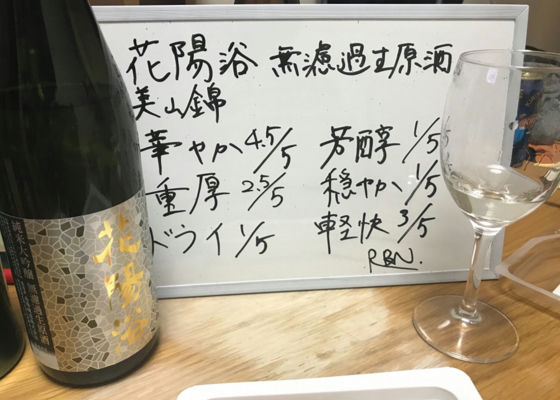 花陽浴 無濾過生原酒
美山錦
華やか 4.5/5 芳醇 1/5
重厚 2.5/5 穏やか 1/5
ドライ 1/5 軽快 3/5
RBN.
花陽浴
純米大吟醸 無濾過生原酒